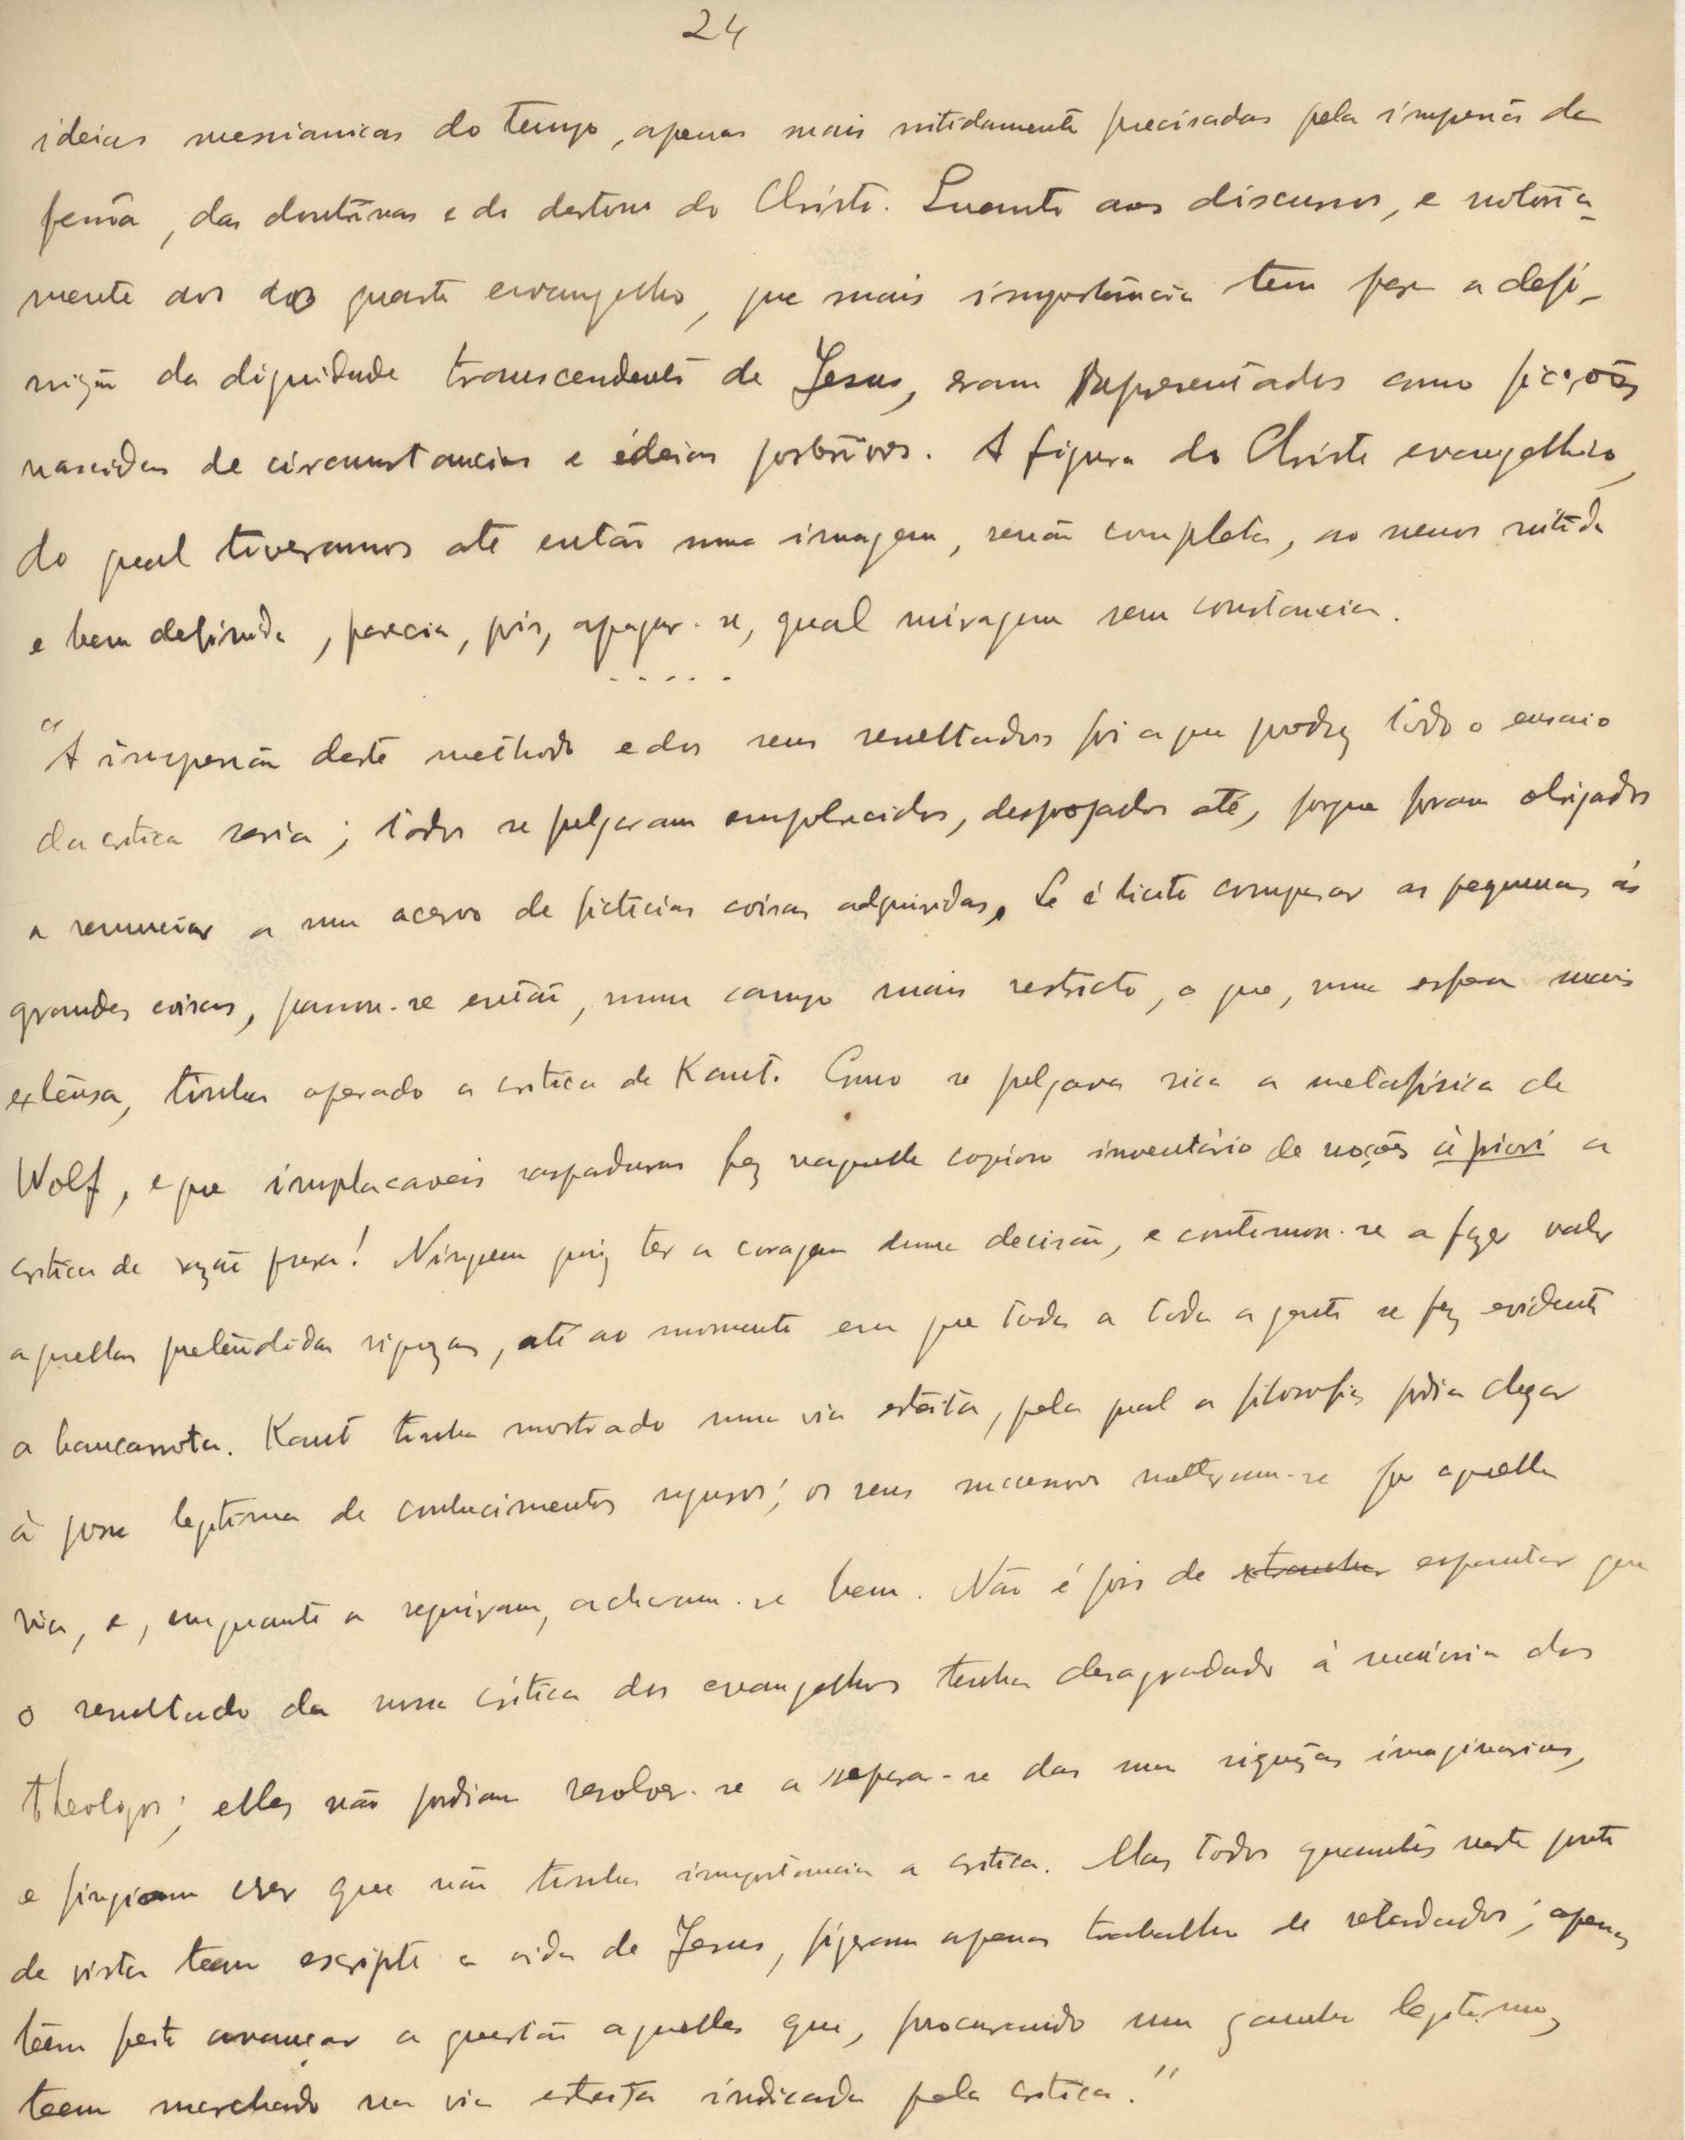 24
ideias messianicas do tempo, apenas mais nitidamente precisadas pela impressão da
pessôa, das doutrinas e do destino do Christo. Quanto aos discursos, e notoria-
mente aos do quarto evangelho, que mais importância tem para a defi-
nição da dignidade transcendente de Jesus, eram representados como ficções
nascidas de circumstancias e ideias posteriores. A figura do Christo evangelhico,
do qual tiveramos até então uma imagem, senão completa, ao menos nitida
e bem definida, parecia, pois, apagar-se, qual miragem sem constancia.
.....
"A impressão deste methodo e dos seus resultados foi a que produz todo o ensaio
da critica seria; todos se julgaram empobrecidos, despojados até, porque foram obrigados
a renunciar a um acervo de ficticias coisas adquiridas. Se é licito comparar as pequenas ás
grandes coisas, passou-se então, num campo mais restricto, o que, numa esfera mais
extensa, tinha operado a critica de Kant. Como se julgava rica a metafísica de
Wolf, e que implacaveis raspaduras fez naquelle copioso inventário de noções à priori a
critica da razão pura! Ninguem quiz ter a coragem duma decisão, e continuou-se a fazer valer
aquellas pretendidas riquezas, até ao momento em que toda a toda a gente se fez evidente
a bancarrota. Kant tinha mostrado uma via estreita, pela qual a filosofia podia chegar
à posse legitima de conhecimentos seguros; os seus sucessores metteram-se por aquella
via, e, enquanto a seguiram, acharam-se bem. Não é pois de extranhar espantar que
o resultado da nossa crítica dos evangelhos tenha desagradado á maioria dos
theologos; elles não podiam resolver-se a separar-se das suas riquezas imaginarias,
e fingiam crer que não tinha importancia a critica. Mas todos quantos neste ponto
de vista teem escripto a vida de Jesus, fizeram apenas trabalho de retardados; apenas
têem feito avançar a questão aquelles que, procurando um ganho legitimo,
teem marchado na via estreita indicada pela critica."